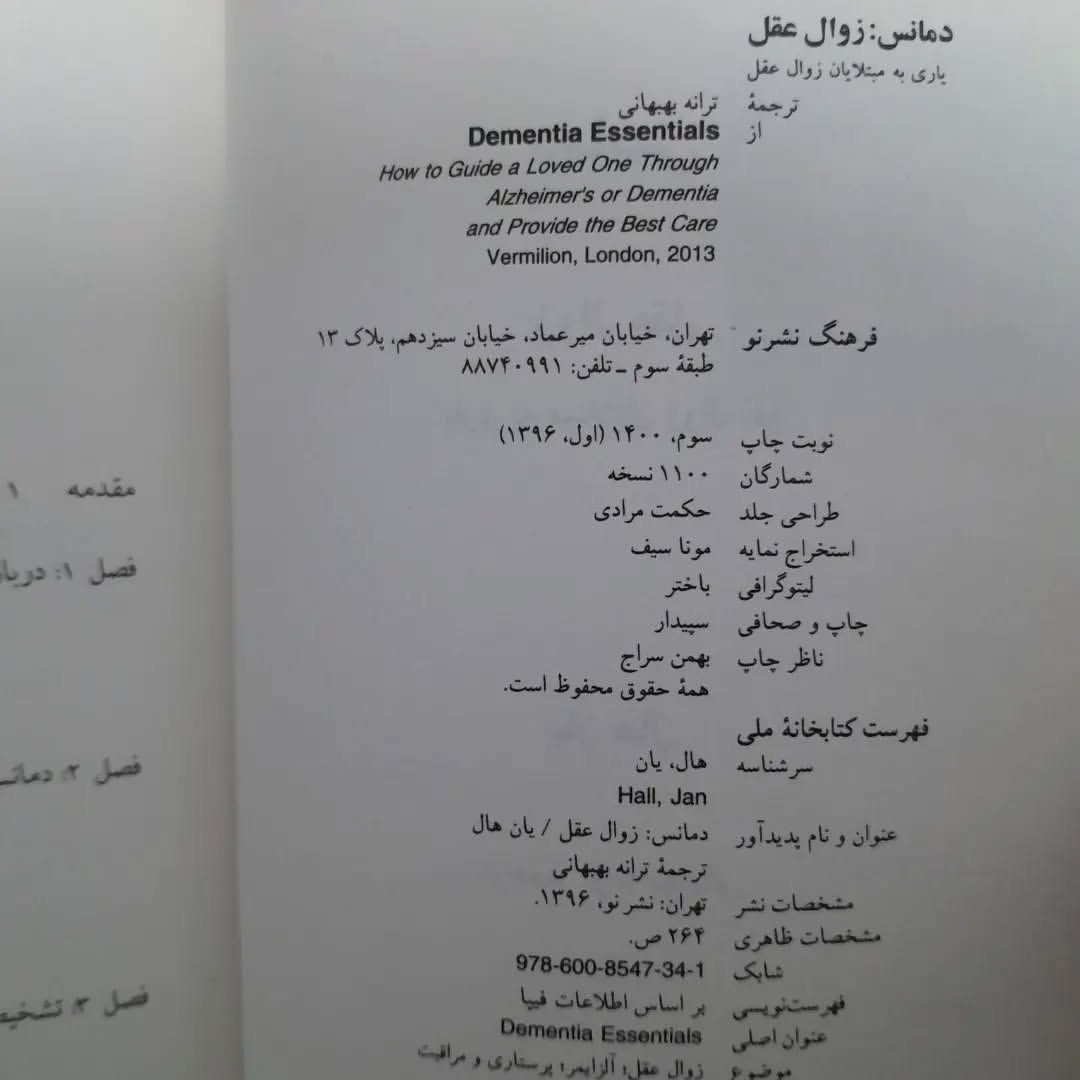 دمانس: زوال عقل
یاری به مبتلایان زوال عقل
ترجمۀ ترانه بهبهانی
از Dementia Essentials
How to Guide a Loved One Through
Alzheimer's or Dementia
and Provide the Best Care
Vermilion, London, 2013
فرهنگ نشرنو تهران، خیابان میرعماد، خیابان سیزدهم، پلاک ۱۳
طبقۀ سوم ـ تلفن: ۸۸۷۴۰۹۹۱
نوبت چاپ سوم، ۱۴۰۰ (اول، ۱۳۹۶)
شمارگان ۱۱۰۰ نسخه
طراحی جلد حکمت مرادی
استخراج نمایه مونا سیف
لیتوگرافی باختر
چاپ و صحافی سپیدار
ناظر چاپ بهمن سراج
همۀ حقوق محفوظ است.
فهرست کتابخانۀ ملی
سرشناسه هال، یان
Hall, Jan
عنوان و نام پدیدآور دمانس: زوال عقل / یان هال
ترجمۀ ترانه بهبهانی
مشخصات نشر تهران: نشر نو، ۱۳۹۶.
مشخصات ظاهری ۲۶۴ ص.
شابک 978-600-8547-34-1
فهرست‌نویسی بر اساس اطلاعات فیپا
عنوان اصلی Dementia Essentials
موضوع زوال عقل؛ آلزایمر؛ پرستاری و مراقبت
مقدمه ۱
فصل ۱:
فصل ۲:
فصل ۳: